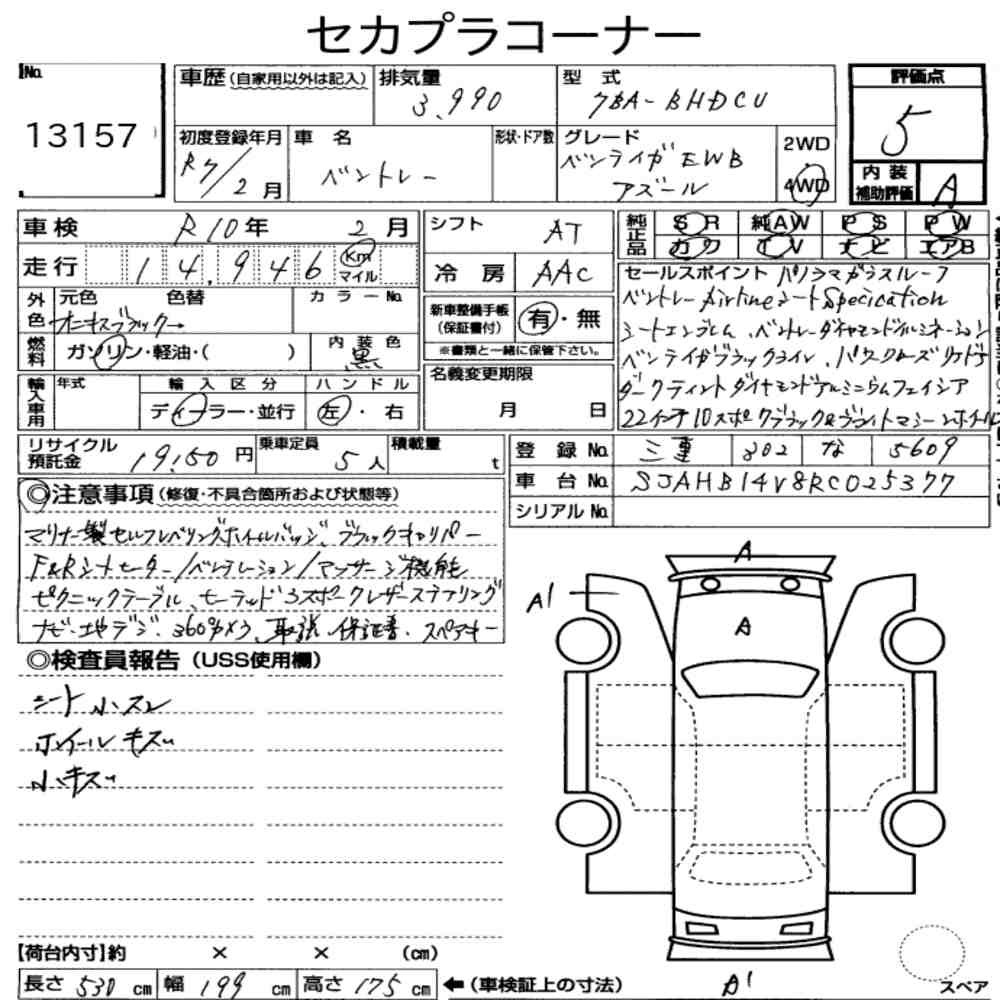 セカプラコーナー
No.
13157
車歴 (自家用以外は記入)
排気量
3,990
型式
7BA-BHDCU
評価点
5
初度登録年月
R7/2月
車名
ベントレー
形状・ドア数
グレード
ベンテイガ EWB
アズール
2WD
4WD
内装
補助評価
A
車検 R10年 2月
走行 14,946 Km
マイル
シフト AT
冷房 AAC
純正品
SR 純AW PS PW
カワ TV ナビ エアB
外色
元色 色替
オニキスブラック
カラーNo.
燃料
ガソリン・軽油・( )
内装色
黒
新車整備手帳
(保証書付)
有・無
※書類と一緒に保管下さい。
セールスポイント パノラマガラスルーフ
ベントレー Airlineシート Specification
シートエンブレム、ベントレーダイヤモンドイルミネーション
ベンテイガブラックライン、パワークローズリヤドア
ダークティントダイヤモンドアルミニウムフェイシア
22インチ10スポークブラック&ブライトマシーンホイール
輸入車用
年式
輸入区分
ディーラー・並行
ハンドル
左・右
名義変更期限
月 日
リサイクル
預託金
19,150円
乗車定員
5人
積載量
t
登録No. 三重 302 な 5609
車台No. SJAHB14V8RC025377
シリアルNo.
◎注意事項 (修復・不具合箇所および状態等)
マリナー製セルフレベリングホイールバッジ、ブラックキャリパー
F&Rシートヒーター/ベンチレーション/マッサージ機能
ピクニックテーブル、ヒーテッド3スポークレザーステアリング
ナビ・地デジ、360°カメラ、取説、保証書、スペアキー
◎検査員報告 (USS使用欄)
シート小スレ
ホイールキズ
小キズ
A
A1
A
A1
【荷台内寸】約 × × (cm)
長さ 530 cm 幅 199 cm 高さ 175 cm ←(車検証上の寸法)
スペア